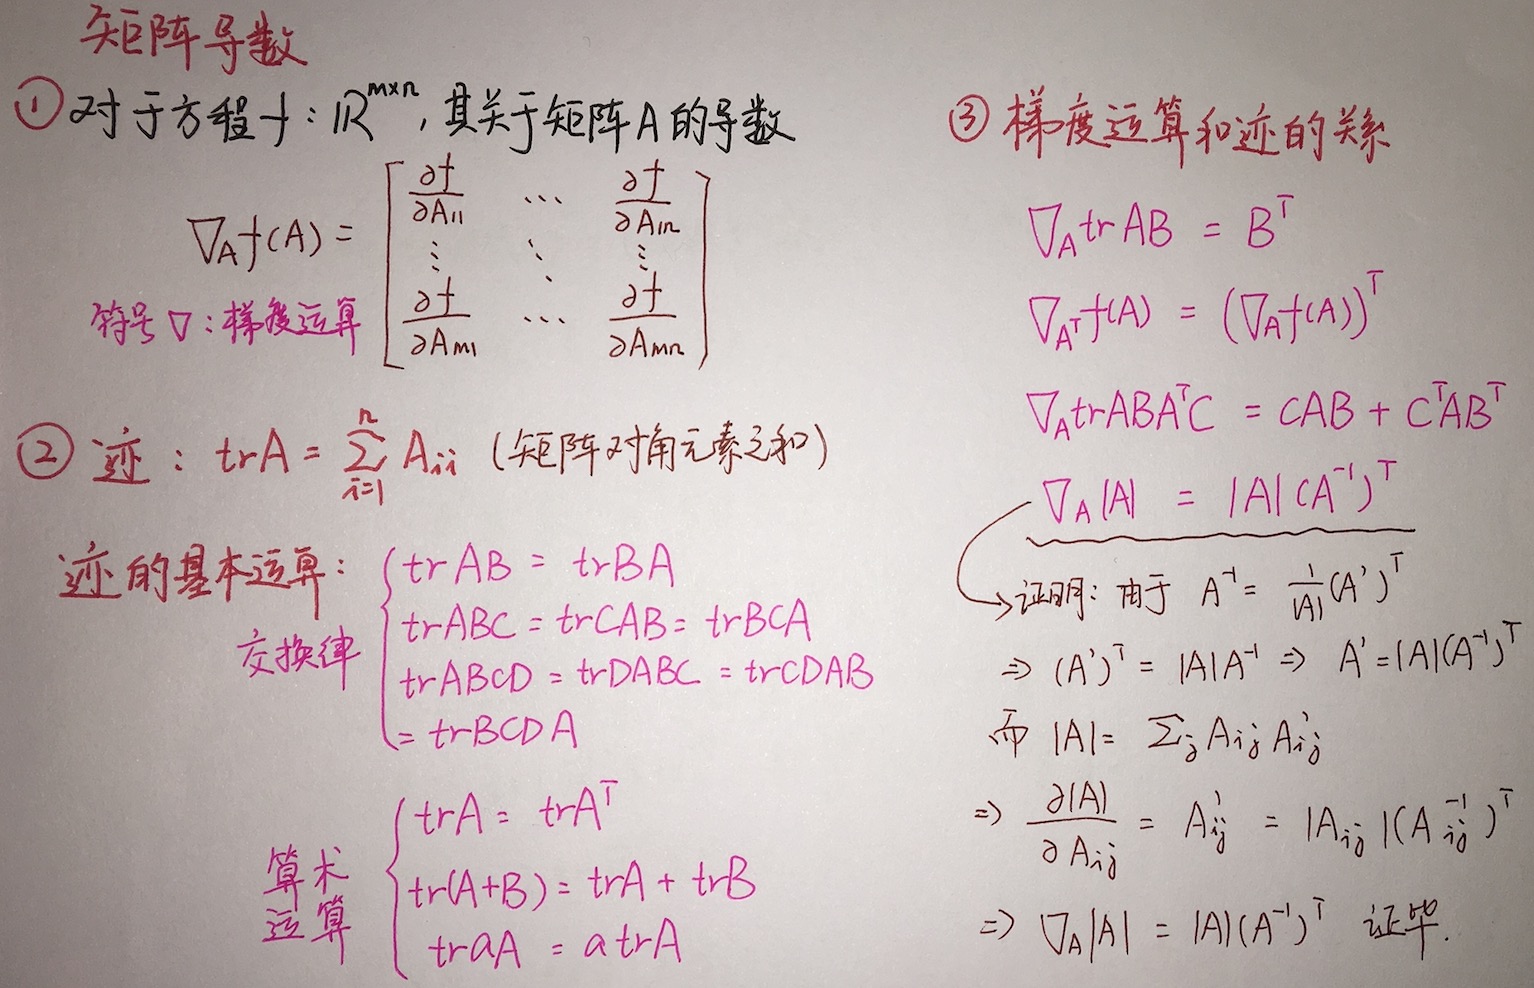 矩阵导数
① 对于方程 f : ℝᵐˣⁿ, 其关于矩阵A的导数
∇_A f(A) = [ ∂f/∂A₁₁ ⋯ ∂f/∂A₁ₙ
⋮ ⋱ ⋮
∂f/∂Aₘ₁ ⋯ ∂f/∂Aₘₙ ]
符号∇: 梯度运算
② 迹: trA = ∑_{i=1}^{n} A_{ii} (矩阵对角元素之和)
迹的基本运算:
交换律
trAB = trBA
trABC = trCAB = trBCA
trABCD = trDABC = trCDAB
= trBCDA
算术
运算
trA = trAᵀ
tr(A+B) = trA + trB
traA = a trA
③ 梯度运算和迹的关系
∇_A trAB = Bᵀ
∇_{Aᵀ} f(A) = (∇_A f(A))ᵀ
∇_A trABAᵀC = CAB + CᵀABᵀ
∇_A |A| = |A|(A⁻¹)ᵀ
证明: 由于 A⁻¹ = 1/|A| (A')ᵀ
⇒ (A')ᵀ = |A|A⁻¹ ⇒ A' = |A|(A⁻¹)ᵀ
而 |A| = ∑_j A_{ij} A'_{ij}
⇒ ∂|A|/∂A_{ij} = A'_{ij} = |A_{ij}|(A_{ij}⁻¹)ᵀ
⇒ ∇_A|A| = |A|(A⁻¹)ᵀ 证毕.